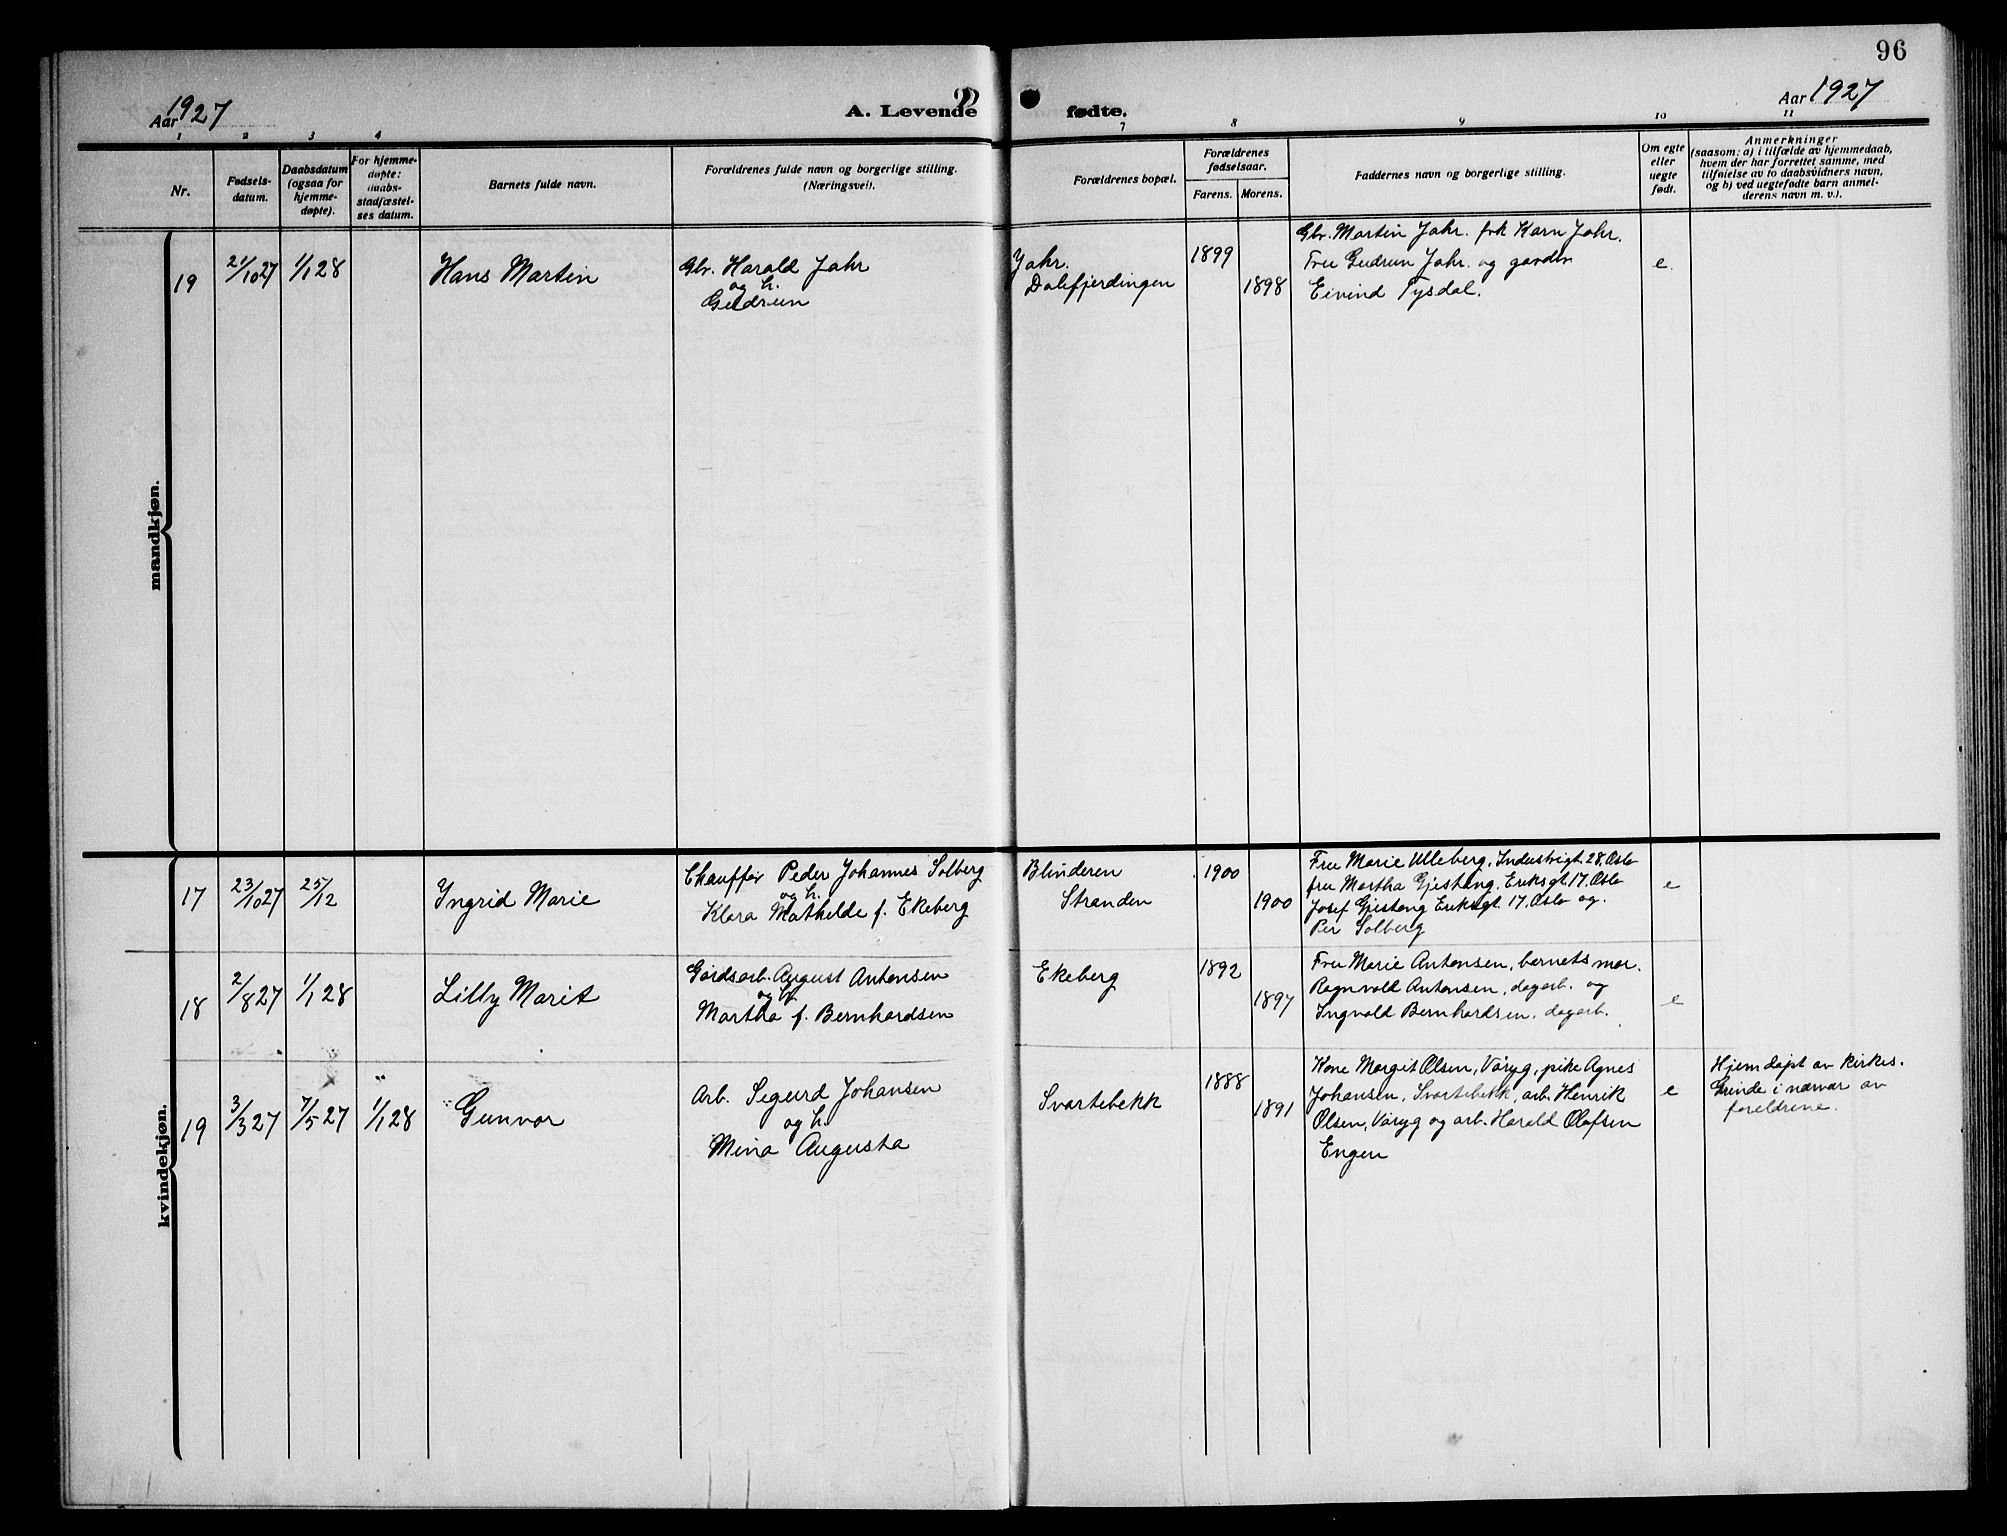 96
Aar 1927
A. Levende fødte.
Aar 1927
1 2 3 4 7 8 9 10 11
Nr.
Fødsels-
datum.
Daabsdatum
(ogsaa for
hjemme-
døpte).
For hjemme-
døpte:
daabs-
stadfæstel-
ses datum.
Barnets fulde navn.
Forældrenes fulde navn og borgerlige stilling.
(Næringsvei).
Forældrenes bopæl.
Forældrenes
fødselsaar.
Farens. Morens.
Faddernes navn og borgerlige stilling.
Om egte
eller
uegte
født.
Anmerkninger
(saasom: a) i tilfælde av hjemmedaab,
hvem der har forrettet samme, med
tilføielse av to daabsvidners navn,
og b) ved uegtefødte barn anmel-
derens navn m. v.).
mandkjøn.
19
21/10 27
1/1 28
Hans Martin
Gbr. Harald Jahr
og h.
Gudrun
Jahr.
Dalefjerdingen
1899
1898
Gbr. Martin Jahr. frk Karn Jahr.
Fru Gudrun Jahr. og gardbr
Eivind Tysdal.
e.
kvindekjøn.
17
23/10 27
25/12
Ingrid Marie
Chauffør Peder Johannes Solberg
og h.
Klara Mathilde f. Ekeberg
Blinderen
Stranden
1900
1900
Fru Marie Ulleberg, Industrigt. 28, Oslo
fru Martha Gjestang, Eriksgt. 17, Oslo
Josef Gjestang Eriksgt. 17, Oslo og.
Per Solberg
e
18
2/8 27
1/1 28
Lilly Marit
Gårdsarb. August Antonsen
og h.
Martha f. Bernhardsen
Ekeberg
1892
1897
Fru Marie Antonsen, barnets mor.
Ragnvald Antonsen, dagarb. og
Ingvald Bernhardsen, dagarb.
e
19
3/3 27
7/5 27
1/1 28
Gunvor
Arb. Sigurd Johansen
og h.
Mina Augusta
Svartebekk
1888
1891
Kone Margit Olsen, Våryg, pike Agnes
Johansen, Svartebekk, arb. Henrik
Olsen, Våryg og arb. Harald Olafsen
Engen
e
Hjemdøpt av kirkes.
Grinde i nærvær av
foreldrene.